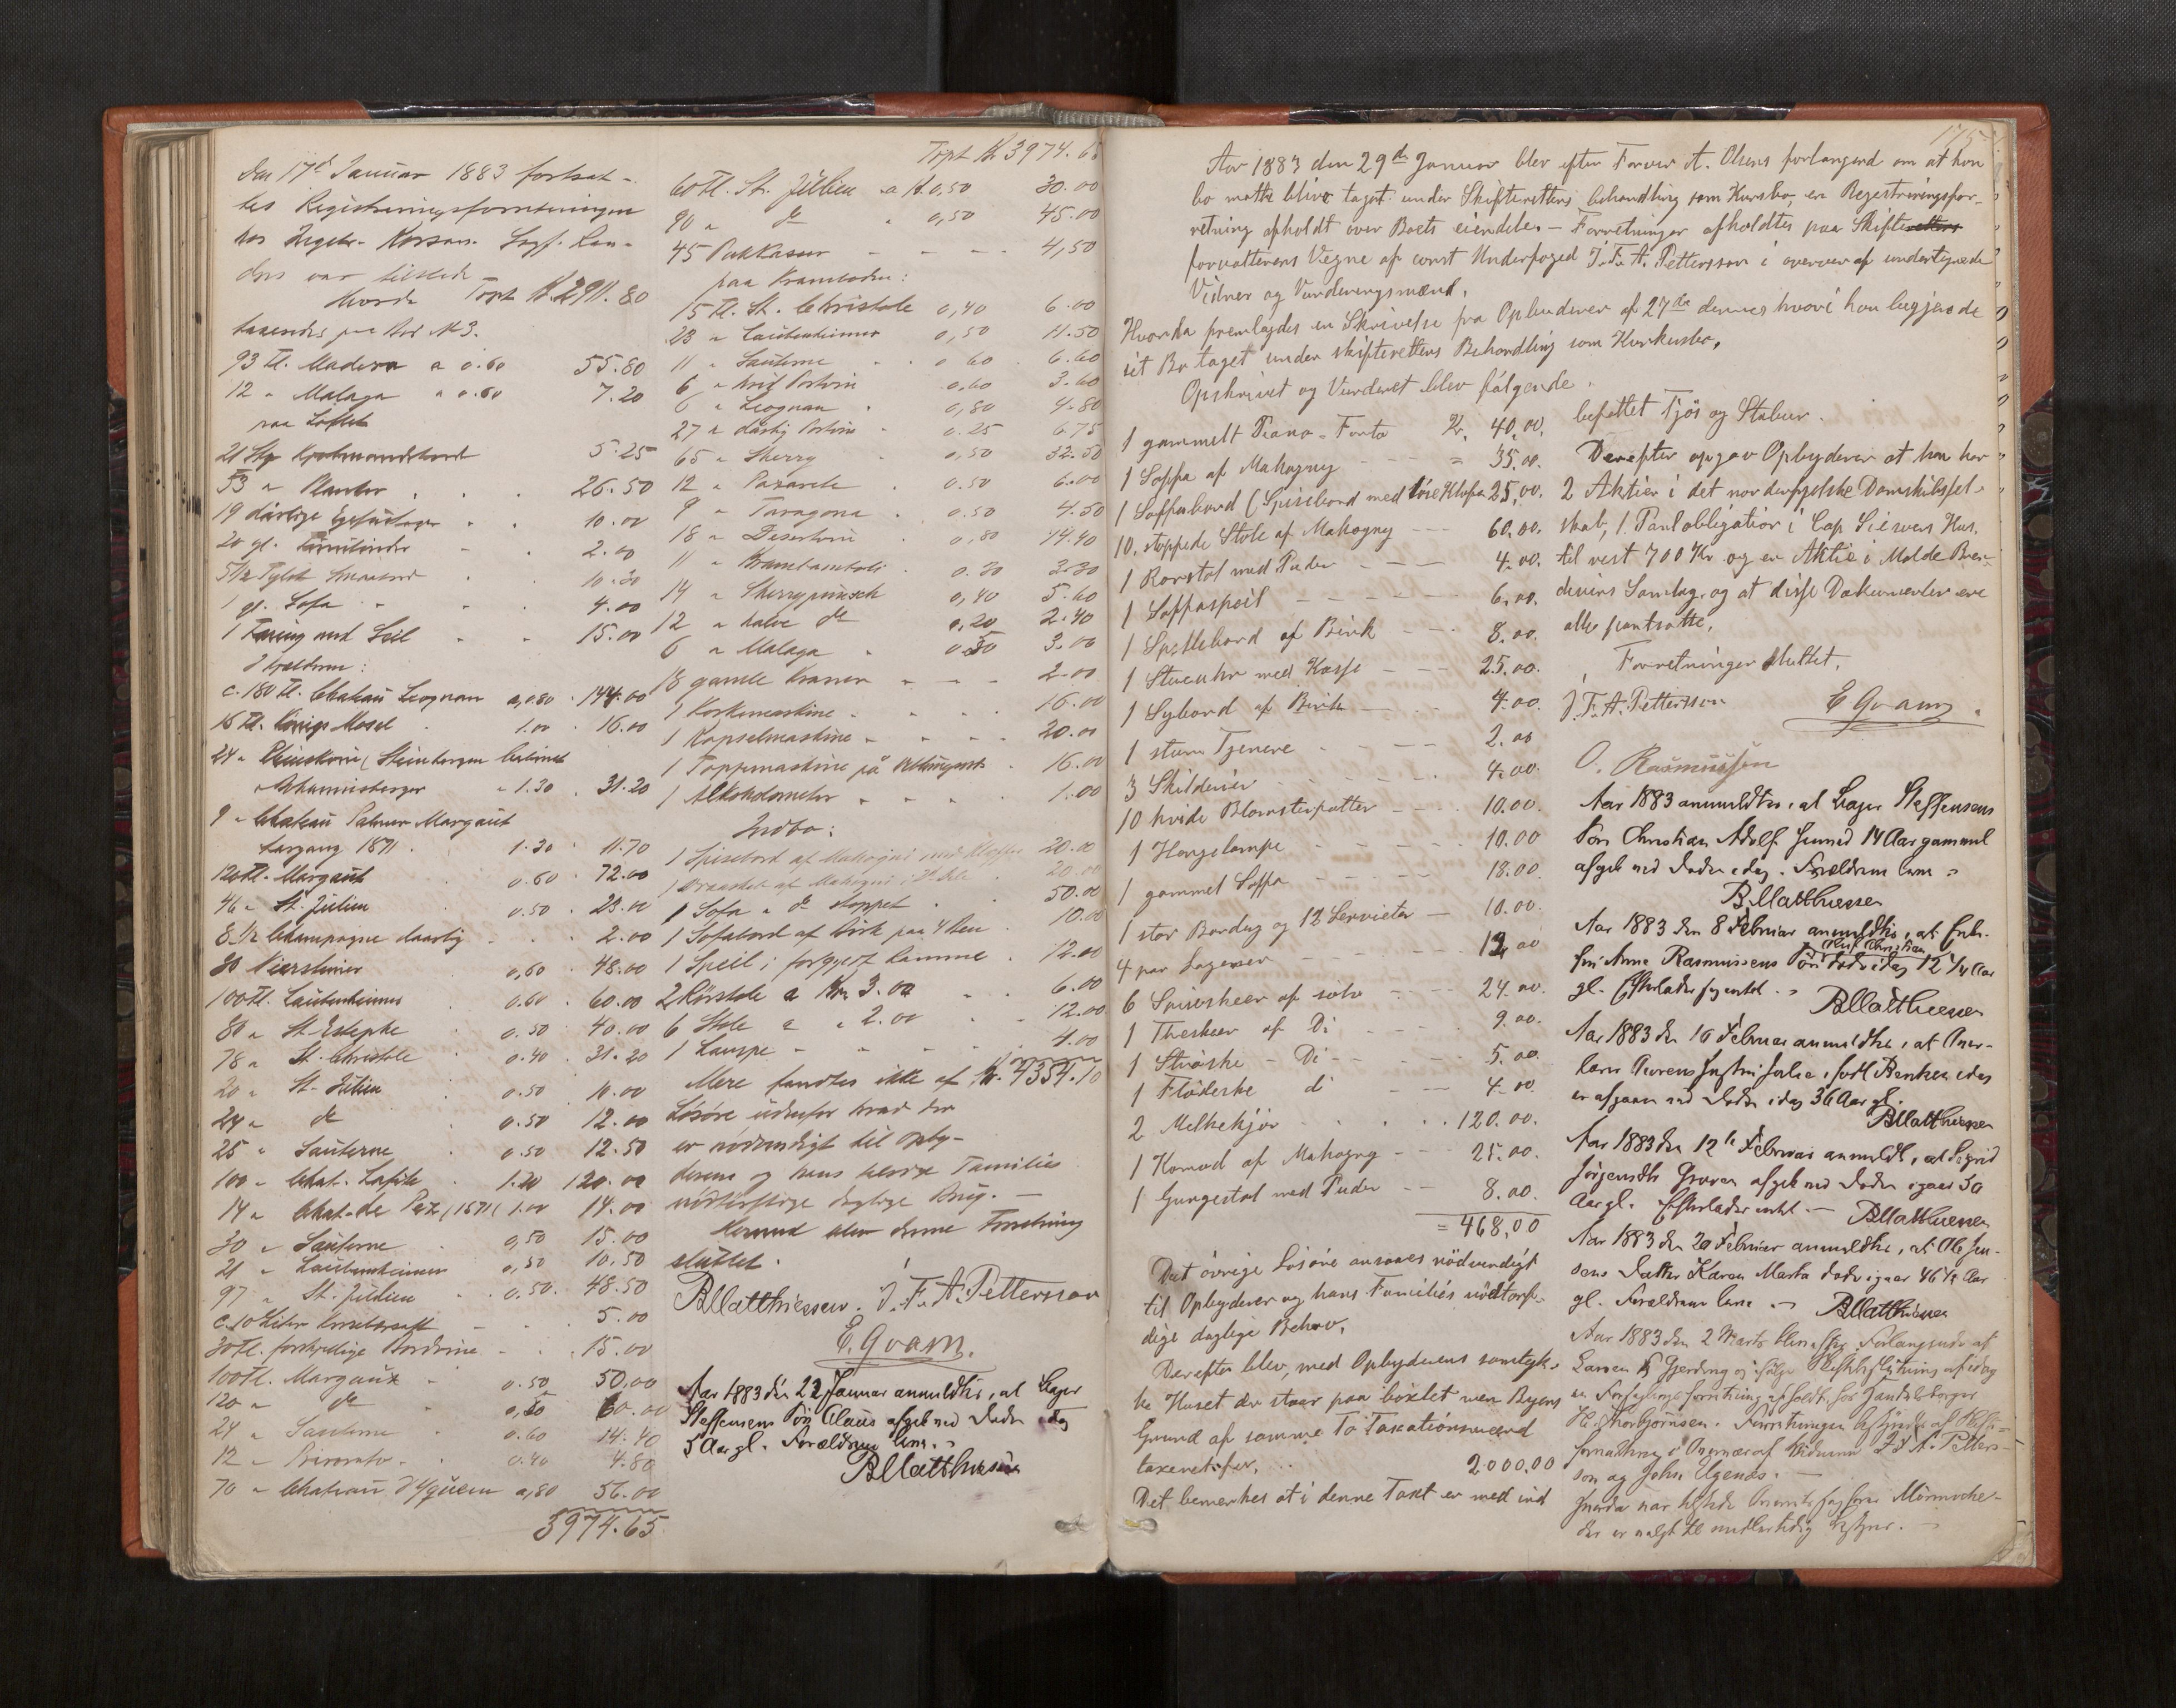 Den 17de Januar 1883 fortsat-
tes Registreringsforretningen
hos
dens var tilstede
Hvorda Trpt Kr 2911.80
taxeredes paa No 3.
93 Fl. Madera a 0.60 55.80
12 " Malaga a 0.60 7.20
paa Loftet
21 Stk 5.25
53 " Planker 26.50
19 dårlige 10.00
20 gl. 2.00
5 1/2 Tylvt 10.30
1 gl. Sofa 4.00
1 med Seil 15.00
I Kjælderen:
c. 180 Fl. Chateau Leognan a 0,80 144.00
16 Fl. Mosel 1.00 16.00
24 " Rhinskvin (Steinberger Cabinet
Johannisberger 1.30 31.20
9 " Chateau Palmer Margaux
targang 1871 1.30 11.70
120 Fl. Margaux 0.60 72.00
46 " St. Julien 0.50 23.00
8 1/2 Champagne daarlig 2.00
80 Niersteiner 0,60 48.00
100 Fl. Laubenheimer 0.60 60.00
80 " St. Estephe 0.50 40.00
78 " St. Christole 0.40 31.20
20 " St. Julien 0.50 10.00
24 " do 0.50 12.00
25 " Sauterne 0.50 12.50
100 " Chat. Lafite 1.20 120.00
14 " Chat. de Pez (1871) 1.00 14.00
30 " Sauterne 0,50 15.00
21 " Laubenheimer 0,50 10.50
97 " St. Julien 0.50 48.50
c. 10 Liter 5.00
30 Fl. forskjellige Bordvine 15.00
100 Fl. Margaux 0.50 50.00
120 " do 0,50 60.00
24 " Sauterne 0.60 14.40
12 " Priorato 0.40 4.80
70 " Chateau d'Yquem 0,80 56.00
3974.65
Trpt Kr 3974.65
60 Fl. St. Julien a Kr 0,50 30.00
90 " do " 0,50 45.00
45 Pakkasser 4,50
paa Kramboden:
15 Fl. St. Christole 0,40 6.00
23 " Laubenheimer 0,50 11.50
11 " Sauterne 0 60 6.60
6 " hvid Portvin 0.60 3.60
6 " Leognan 0,80 4.80
27 " dårlig Portvin 0.25 6.75
65 " Sherry 0,50 32.50
12 " Paxarete 0.50 6.00
9 " Taragona 0.50 4.50
18 " Desertvin 0,80 14.40
11 " Krambambuli 0.30 3.30
14 " Sherrypunsch 0,40 5.60
12 " halve do 0,20 2.40
6 " Malaga 0.50 3.00
18 gamle Kasser 2.00
1 Korkemaskine 16.00
1 Kapselmaskine 20.00
1 Tappemaskine på 16.00
1 Alkoholometer 1.00
Indbo:
1 Spisebord af Mahogni med Klaffer 20.00
1 af Mahogni 20.00
1 Sofa " do stoppet 50.00
1 Sofabord af Birk paa 4 Ben 10.00
1 Speil i forgyldt Ramme 12.00
2 Rörstole a Kr. 3.00 6.00
6 Stole a " 2.00 12.00
1 Lampe 4.00
Mere fandtes ikke af Kr. 4354.10
Lösöre udenfor hvad der
er nödvendigt til Opby-
derens og hans Families
nödtörftige daglige Brug. —
Hermed blev denne Forretning
sluttet.
B Matthiessen. J. F. A. Petterson
E. Qvam.
Aar 1883 den 22 Januar anmeldtes, at Lager
Steffensens Sön Claus afgik ved Döden idag
5 Aar gl. Forældrene leve.
B Matthiessen
175
Aar 1883 den 29de Januar blev efter Farver A. Olsens forlangend om at hans
bo maatte blive taget under Skifterettens behandling som Kursbo, en Registreringsfor-
retning afholdt over Boets eiendeler – Forretningen afholdtes paa Skifteretters
forvalterens Vegne af const Underfoged J. F. A. Petterson i overvær af undertegnede
Vidner og Vurderingsmænd.
Hvorda fremlagdes en Skrivelse fra Opbuderen af 27de dennes hvori han begjærede
sit Bo taget under skifterettens Behandling som Konkursbo.
Opskrivet og Vurderet blev fölgende.
1 gammelt Piano-Forto Kr. 40,00.
1 Soppa af Mahogny = 35.00.
1 Soffabord (Spisebord med löse Klafer 25,00.
10 stoppede Stole af Mahogny 60,00.
1 Rorstol med Puder 4.00.
1 Soffaspeil 6.00.
1 Spillebord af Birk 8.00.
1 Stueuhr med Kasse 25.00.
1 Sybord af Birk 4.00.
1 stum Tjenere 2.00
3 Skilderier 4.00.
10 hvide Blomsterpotter 10.00.
1 Hengelampe 10.00
1 gammel Soffa 18.00.
1 stor Bordug og 12 Servietter 10.00.
4 par Lagener 12,00
6 Spiseskeer af solv 24.00.
1 Theskeer af Di 9.00.
1 Ströske – Di 5.00.
1 Flödeske di 4.00.
2 Melkekjör 120.00.
1 Komod af Mahogny 25.00.
1 Gungestol med Puder 8.00.
= 468,00
Det övrige Lösöre ansaaes nödvendigt
til Opbyderen og hans Familiés nödtörf-
dige daglige Behov.
Derefter blev, med Opbyderens samtyk-
ke Huset der staar paa böxlet uden Byens
Grund af samme To Taxationsmænd
taxeret for, 2.000,00
Det bemerkes at i denne Taxt er med ind
befattet Fjös og Stabur.
Derefter opgav Opbyderen at han har
2 Aktier i det nordenfjelske Damskibssel-
skab, 1 Pantobligation i Cap Sievers Hus.
til rest 700 Kr og en Aktie i Molde Bræn-
devins Samlag. og at disse Dokumenter ere
alle pantsatte.
Forretningen sluttet.
J. F. A. Petterson E Qvam
O. Rasmussen
Aar 1883 anmeldtes, at Lager Steffensens
Sön Christian Adolf 14 Aar gammel
afgik ved Döden idag. Forældrene leve.
B Matthiessen
Aar 1883 den 8 Februar anmeldtes, at Enke-
fru Anna Rasmussens Sön Olaf Christian döde idag 12 1/4 Aar
gl. Efterlader sig intet. B Matthiessen
Aar 1883 den 10 Februar anmeldtes, at
födt
er afgaaet ved Döden idag 36 Aar gl.
B Matthiessen
Aar 1883 den 12te Februar anmeldt, at Sigrid
Jörgensdtr afgik ved Döden igaar 50
Aar gl. Efterlader intet. — B Matthiessen
Aar 1883 den 20 Februar anmeldtes, at Ole Jen-
sens Datter Karen Marta döde igaar 4 6/12 Aar
gl. Forældrene leve. B Matthiessen
Aar 1883 den 2 Marts blev efter Forlangende af
Larsen & Gjerding og ifölge af idag
en Forseglingsforretning afholdt hos Handelsborger
H. Thorbjörnsen. Forretningen af Skifte-
forvaltning i Overvær af Vidnerne J F A. Petter-
son og John Ugenæs. —
Hvorda var tilstede
der er valgt til midlertidig Bestyrer. —